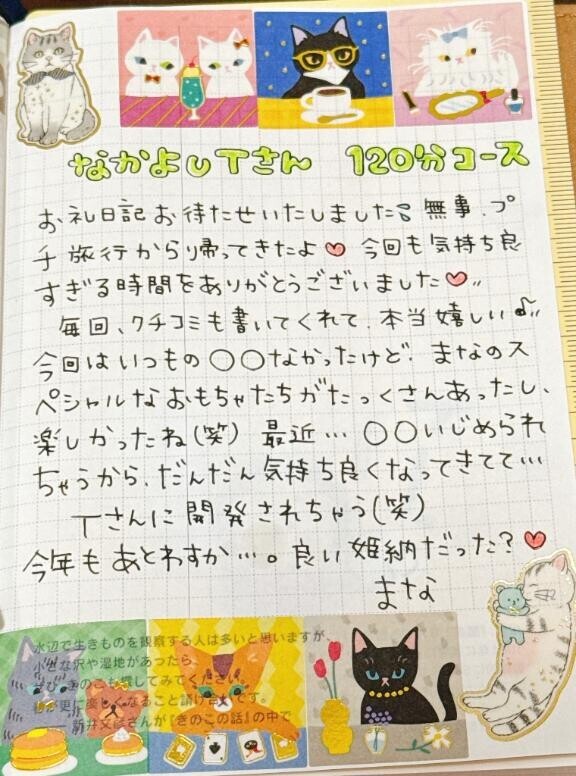 なかよしTさん 120分コース
お礼日記お待たせいたしました 無事、プ
チ旅行から帰ってきたよ♥ 今回も気持ち良
すぎる時間をありがとうございました♥〃
毎回、クチコミも書いてくれて、本当嬉しい♪〃
今回はいつもの〇〇なかったけど、まなのス
ペシャルなおもちゃたちがたっくさんあったし、
楽しかったね(笑) 最近…〇〇いじめられ
ちゃうから、だんだん気持ち良くなってきてて…
Tさんに開発されちゃう(笑)
今年もあとわずか…。良い姫納だった?♥
まな
水辺で生きものを観察する人は多いと思いますが、
小さな沢や湿地があったら、
ぜひ、きのこも探してみてください。
新井文彦さんが『きのこの話』の中で